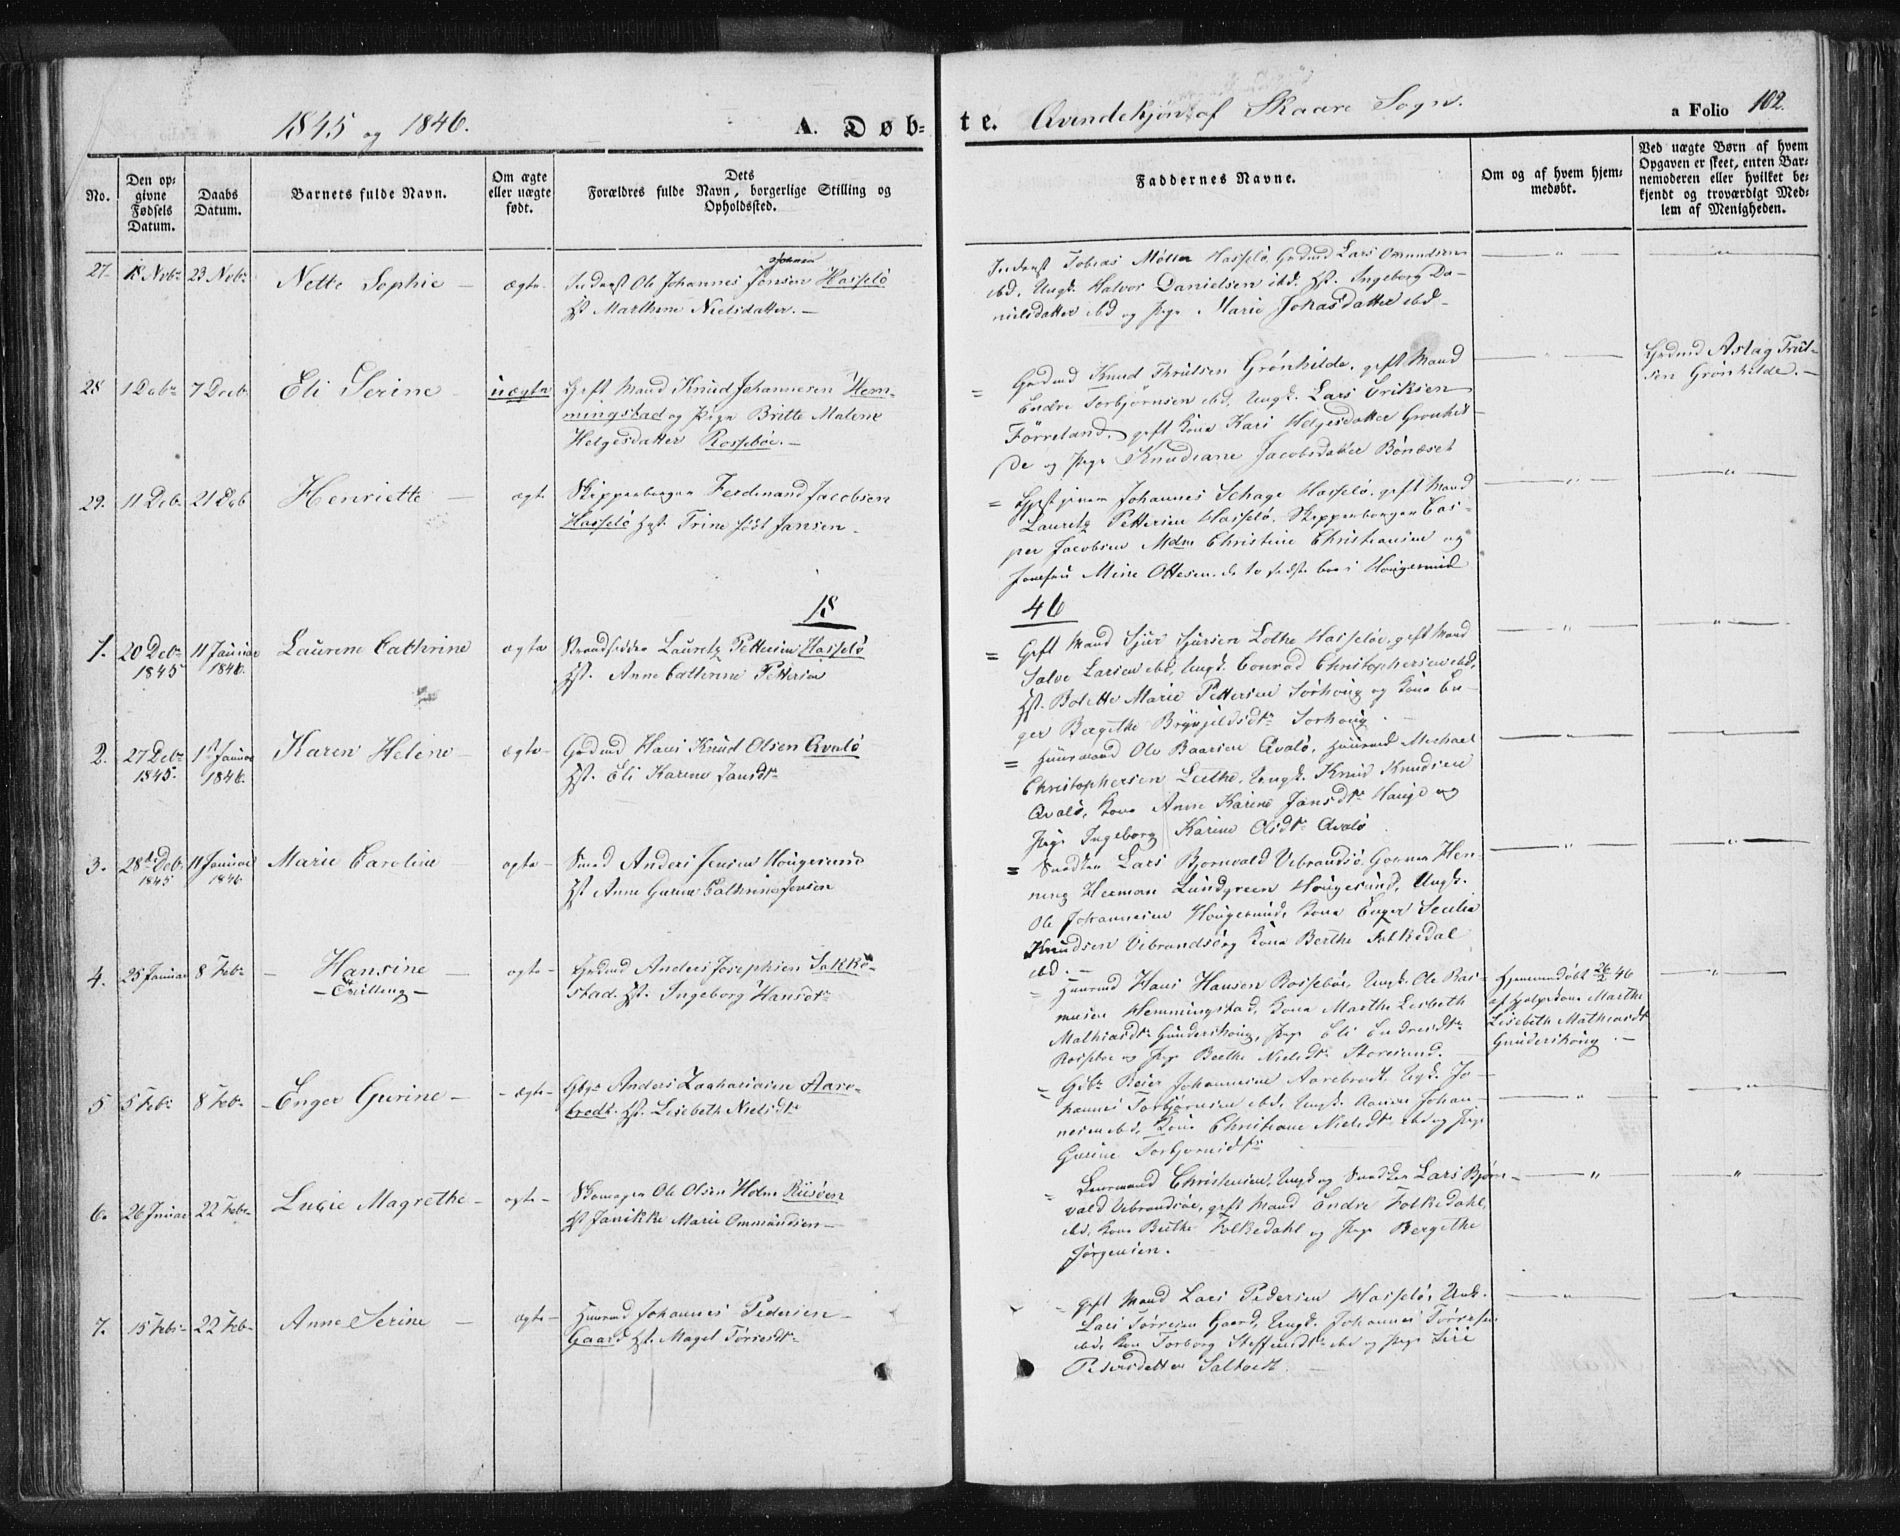 1845 og 1846.
A. Døb-
te. Qvindekjøn af Skaare Sogn.
a Folio 102.
No.
Den op-
givne
Fødsels
Datum.
Daabs
Datum.
Barnets fulde Navn.
Om ægte
eller uægte
født.
Dets
Forældres fulde Navn, borgerlige Stilling og
Opholdssted.
Faddernes Navne.
Om og af hvem hjem-
medøbt.
Ved uægte Børn af hvem
Opgaven er skeet, enten Bar-
nemoderen eller hvilket be-
kjendt og troværdigt Med-
lem af Menigheden.
27. 18 Nvbr 23 Nvbr Nette Sophie ægte Ole Johannes Jonsen Hasselö
Hst. Marthene Nielsdatter.
Tobias Möller Hasselö, Gdmd Lars Omundsen
ibd, Ungk. Halvor Danielsen ibd. Hst. Ingeborg Da-
nielsdatter ibd og Pige Marie Johasdatter ibd
28 1 Decbr 7 Decb Eli Serine uægte Gift Mand Knud Johannesen Hem-
mingstad og Pige Britte Malene
Helgesdatter Rossebøe.
Gdmd Knud Thrulsen Grønhilde, gift Mand
Endre Torbjörnsen ibd, Ungk. Lars Eriksen
Förreland, gift Kone Kari Helgesdatter Grønhil-
de og Pige Knudiane Jacobsdatter Bönæset
Gdmd Aslag Trul-
sen Grönhilde.
29. 11 Deb. 21 Deb Henriette ægte Skipperborger Ferdinand Jacobsen
Hasselö Hst. Trine født Jansen.
Gjestgiver Johannes Schage Hasselö, gift Mand
Lauretz Pettersen Hasselö, Skipperborger Cas-
per Jacobsen Mdm Christine Christiansen og
Jomfru Mine Ottesen. de to sidste boe i Hougesund
18
46
1. 20 Debr 1845 11 Januar 1846. Laurene Cathrine ægte Strandsidder Lauretz Pettersen Hasselö
Hst. Anne Catterine Pettersen
Gift Mand Sjur Sjursen Lothe Hasselöe, gift Mand
Salve Larsen ibd, Ungk. Conrad Christophersen ibd,
Hst. Bolette Marie Pettersen Sörhoug og Kone En-
ger Bergithe Brynjeldsdtr Sorhoug.
2. 27 Debr 1845. 1st Januar 1846. Karen Heline ægte Gdmd Hans Knud Olsen Qvalö
Hst. Eli Karine Jansdtr
Huusmand Ole Baarsen Qvalö, Huusmd Michael
Christophersen Lothe, Ungk. Knud Knudsen
Qvalö, Kone Anne Karine Jansdtr Hauge og
Pige Ingeborg Karine Olsdtr Qvalö
3. 28d Deb. 1845 11 Januar 1846. Marie Caroline ægte Smed Anders Jensen Hougesund
Hst Anne Gurine Cathrine Jensen
Snedker Lars Bjornvald Vibrandsö, Garver Hen-
ning Herman Lundgreen Hougesund, Ungk.
Ole Johannesen Hougesund, Kone Enger Secilia
Knudsen Vibrandsö og Kone Berthe Folkedal
ibd.
4. 25 Januar 8 Febr Hansine
Tvilling
ægte Gdmd Anders Josephsen Sakke-
stad. Hst. Ingeborg Hansdtr
Huusmd Hans Hansen Rossebøe, Ungk. Ole Ras-
musen Hemmingstad, Kone Marthe Lisbeth
Mathiasdtr Gundershoug, Pige Eli Endresdtr
Rossebø og Pige Berthe Nielsdtr Storesund.
Hjemmedöbt 26/2 46
af Hjelpekone Marthe
Lisebeth Mathiasdt
Gundershoug.
5 5 Febr 8 Febr Enger Gurine ægte Gbgr Anders Zachariasen Aare-
brodt. Hst. Lisebeth Nielsdtr
Gbr Reier Johannesen Aarebrodt, Ungk. Jo-
hannes Torbjörnsen ibd, Ungk. Johan-
nesen ibd, Kone Christiane Nielsdtr ibd og Pige
Gurine Torbjornsdtr
6. 26 Januar 22 Febr Lucie Magrethe ægte Skomager Ole Olsen Holm Risöen
Hst Janikke Marie Ommundsen
Christensen, Ungk og Snedker Lars Bjørn-
vald Vibrandsöe, gift Mand Endre Folkedahl,
ibd, Kone Berthe Folkedahl og Pige Bergithe
Jörgensen.
7. 15 Febr 22 Feb Anne Serine ægte Huusmd Johannes Pedersen
Gaard Hst. Magel Tørresdtr
gift Mand Lars Pedersen Hasselö, Ungk.
Lars Tørresen Gaard, Ungk. Johannes Tørresen
ibd, Kone Torborg Steffensdtr ibd og Pige Siri
Pedersdatter Saltvedt